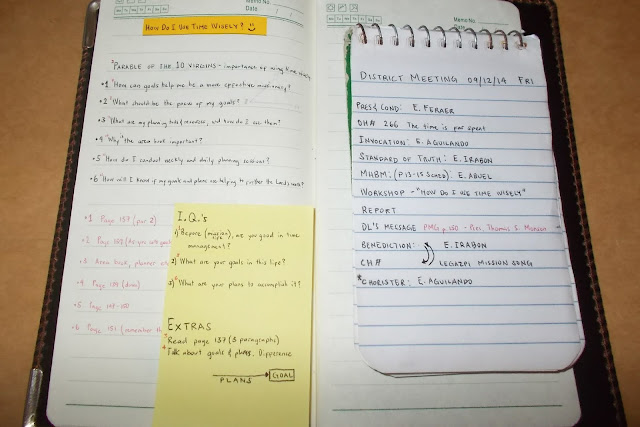 Memo No.
Date
How Do I Use Time Wisely?
*Parable of the 10 virgins - importance of using time wisely
•1 "How can goals help me be a more effective missionary?
•2 "What should be the focus of my goals?
•3 "What are my planning tools/resources, and how do I use them?
•4 "Why" the area book important?
•5 "How do I conduct weekly and daily planning sessions?
•6 "How will I know if my goals and plans are helping to further the Lord's work?
•1 Page 137 (par 2)
•2. Page
•3. Area book, planner
•4. Page
•5. Page
•6. Page 151 (remember
I.Q.'s
1) Before (mission life), are you good in time
management?
2) What are your goals in this life?
3) What are your plans to accomplish it?
Extras
Read page 137 (3 paragraphs)
Talk about goals & plans. Difference
PLANS
GOAL
Memo No.
Date
District Meeting 09/12/14 Fri
Pres & Cond: E. Feraer
OH# 266 The time is far spent
Invocation: E. Aguilando
Standard of Truth: E. Irabon
MHBM: (P13-15 S & TD): E. Abuel
Workshop - "How do I use time wisely"
Report
DL's Message PMG p. 150 - Pres. Thomas S. Monson
Benediction: E. Irabon
CH# Legazpi Mission Song
*Chorister: E. Aguilando